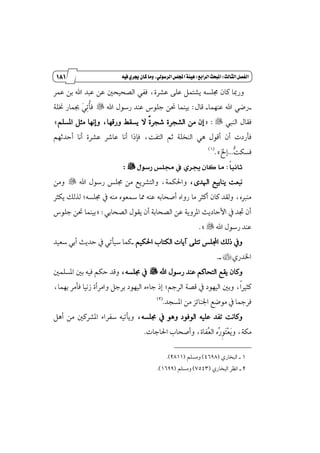 الفصل الثالث: المبحث الرابع: هيئة المجلس الرسولي، وما كان يجري فيه ١٨١
وربما كان مجلسه يشتمل على عشرة، ففي الصحيحين عن عبد الله بن عمر
ـ رضي الله عنهماـ قال: بينما نحن جلوس عند رسول الله ﷺ فَأُتِيَ بجمار نخلة
فقال النبي ﷺ : «إن من الشجرة شجرةً لا يسقط ورقها، وإنها مثل المسلم؛
فأردت أن أقول هي النخلة ثم التفت، فإذا أنا عاشر عشرة أنا أحدثهم
فسكتُّ...إلخ».(١)
ثانياً: ما كان يجري في مجلس رسول ﷺ :
نبعت ينابيع الهدى، والحكمة، والتشريع من مجلس رسول الله ﷺ ومن
منبره، ولقد كان أكثر ما رواه أصحابه عنه مما سمعوه منه في مجلسه؛ لذلك يكثر
أن تجد في الأحاديث المروية عن الصحابة أن يقول الصحابي: «بينما نحن جلوس
عند رسول الله ﷺ ».
وفي ذلك المجلس تتلى آيات الكتاب الحكيم ـ كما سيأتي في حديث أبي سعيد
الخدري ـ.
وكان يقع التحاكم عند رسول الله ﷺ في مجلسه، وقد حكم فيه بين المسلمين
كثيراً، وبين اليهود في قصة الرجم؛ إذ جاءه اليهود برجل وامرأة زنيا فأمر بهما،
فرجما في موضع الجنائز من المسجد.(٢)
وكانت تفد عليه الوفود وهو في مجلسه، ويأتيه سفراء المشركين من أهل
مكة، ويَعْتَوِرُه العُفاة، وأصحاب الحاجات.
١ ـ البخاري (٤٦٩٨) ومسلم (٢٨١١).
٢ ـ انظر البخاري (٧٥٤٣) ومسلم (١٦٩٩).